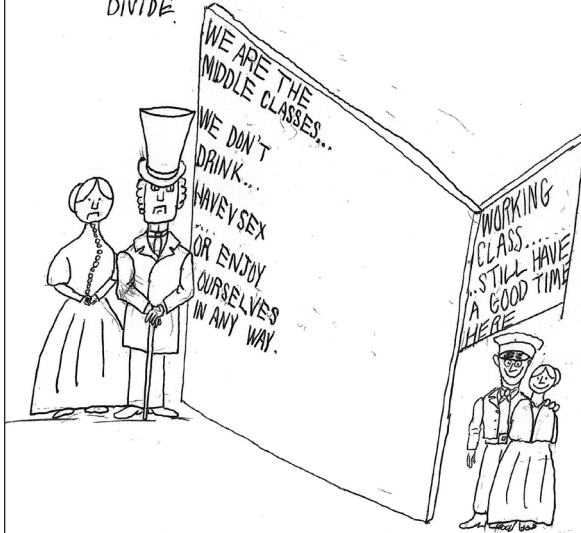 DIVIDE.
WE ARE THE
MIDDLE CLASSES...
WE DON'T
DRINK...
HAVEV SEX
... OR ENJOY
OURSELVES
IN ANY WAY.
WORKING
CLASS.....
..STILL HAVE
A GOOD TIME
HERE